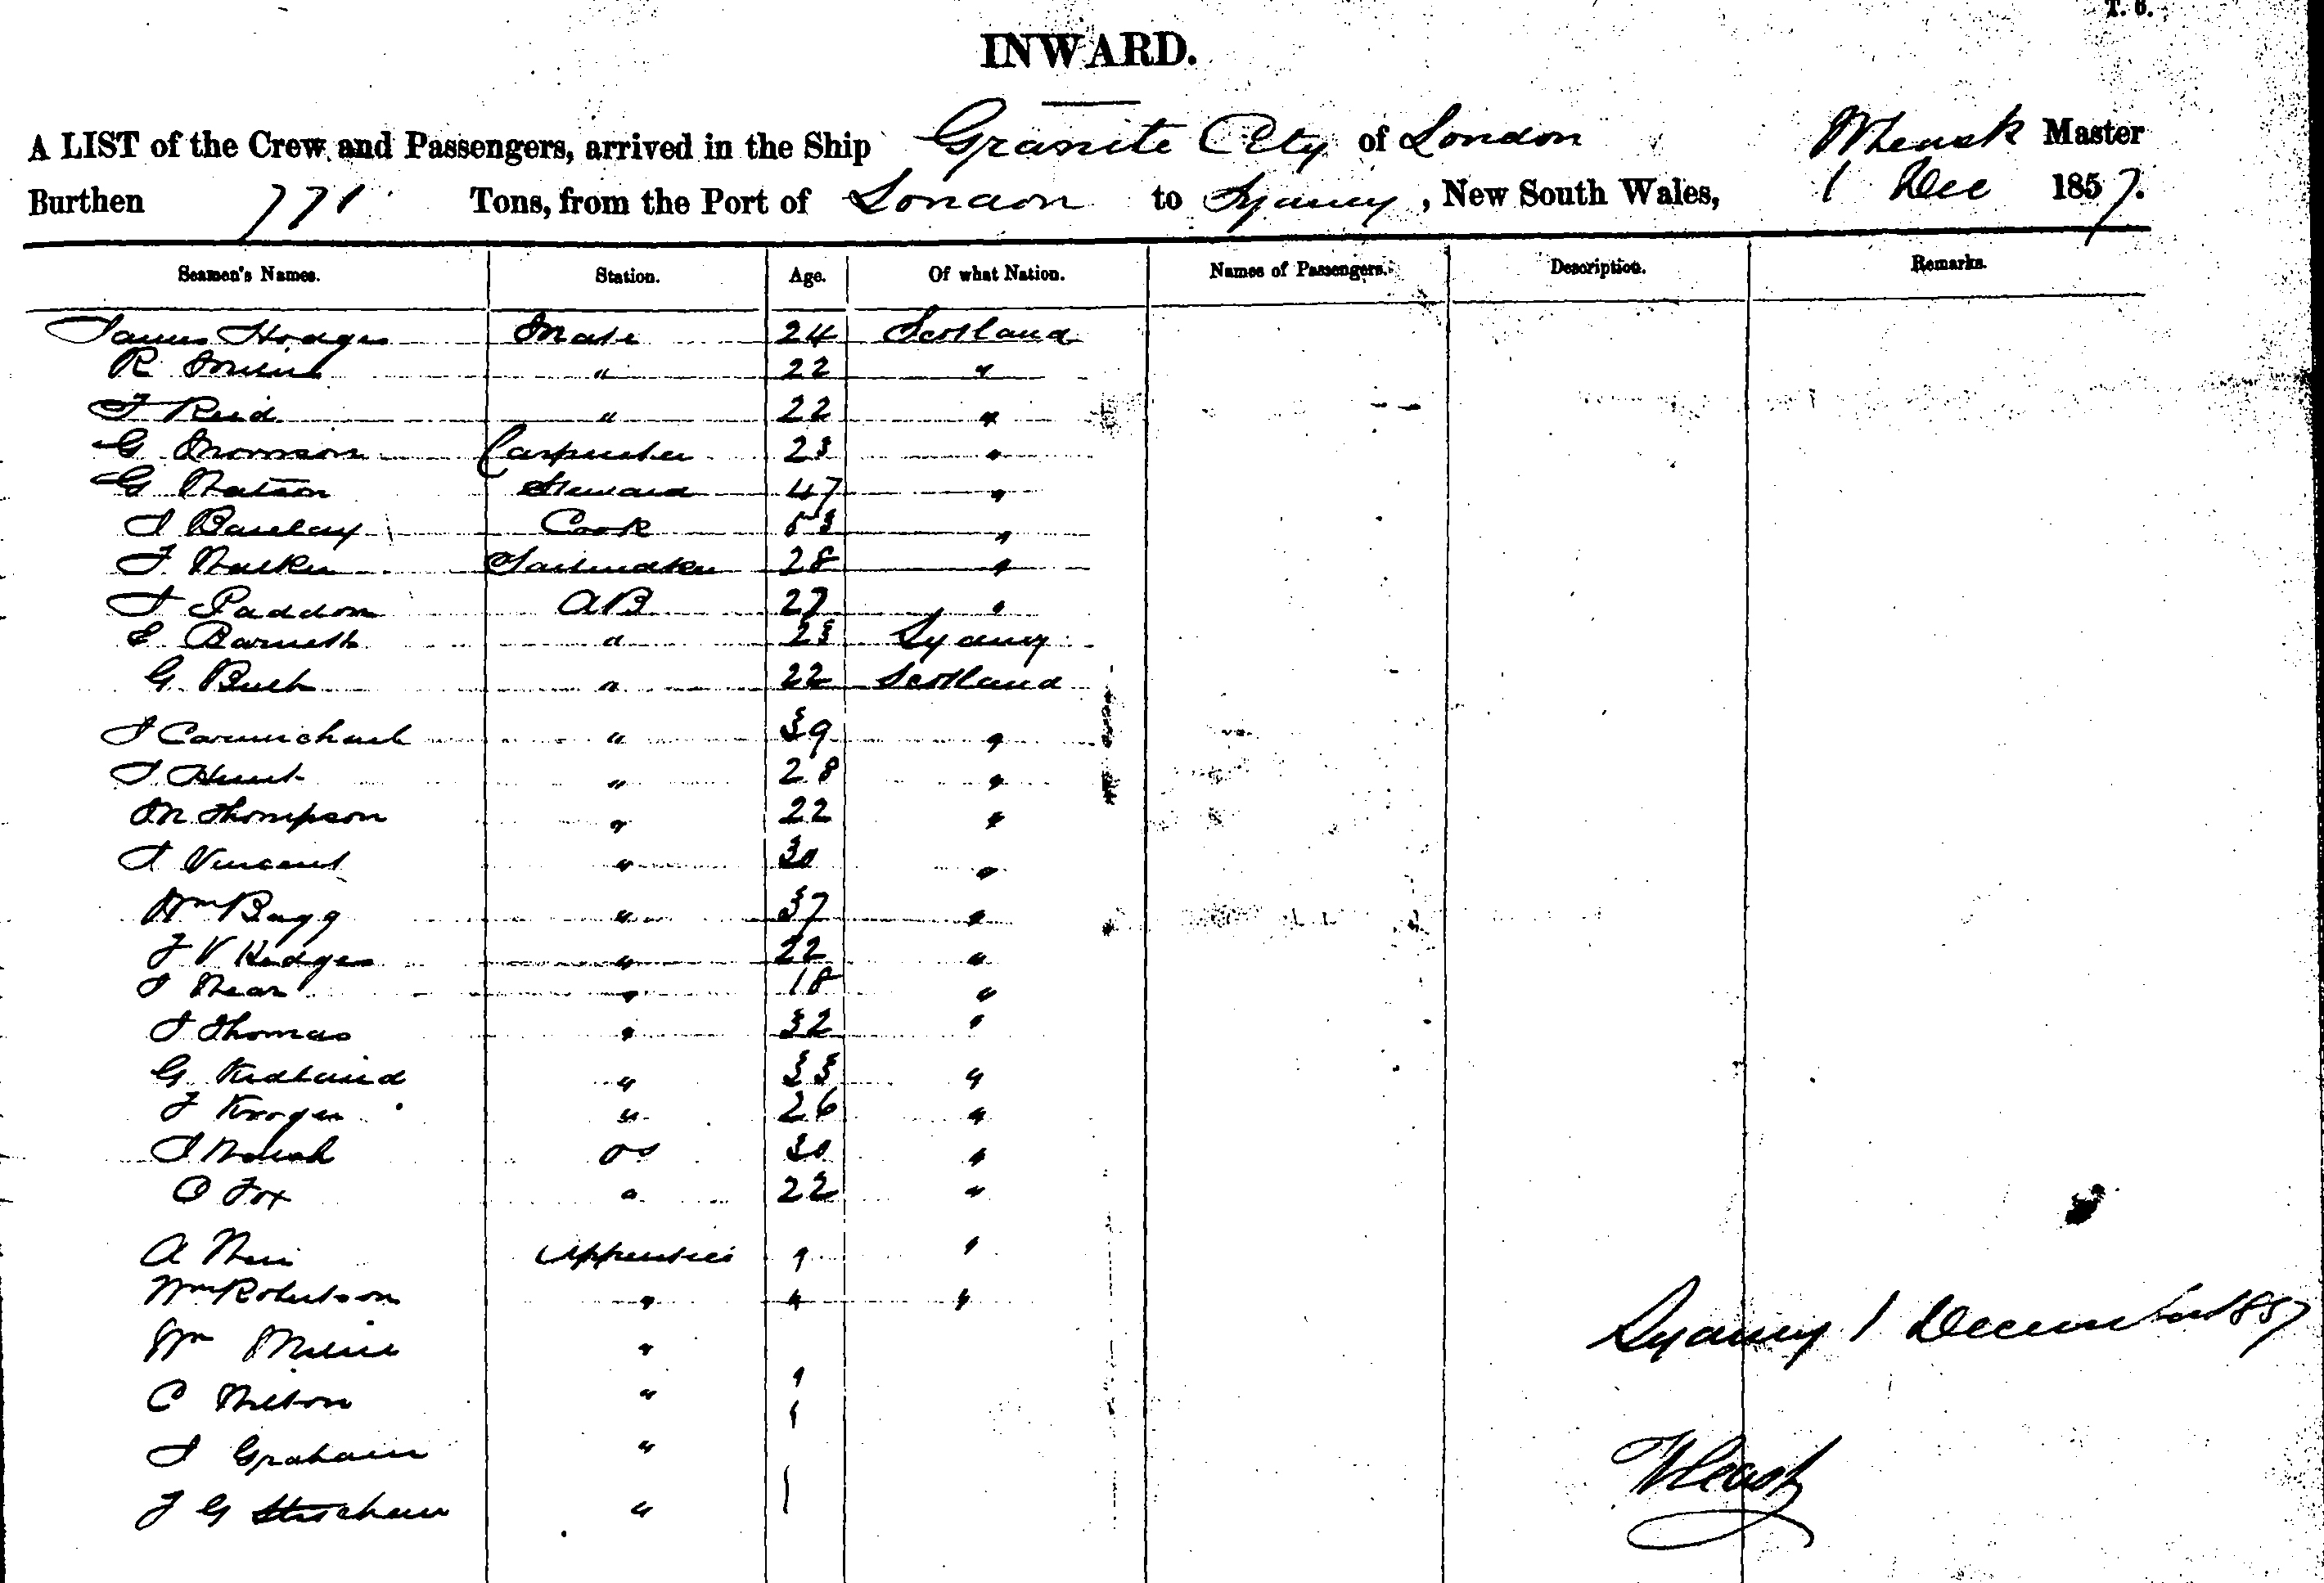 T. 6.
INWARD.
A LIST of the Crew and Passengers, arrived in the Ship Granite City of London Master
Burthen 771 Tons, from the Port of London to Sydney, New South Wales, 1 Dec 1857.
Seamen's Names. Station. Age. Of what Nation. Names of Passengers. Description. Remarks.
James Hodges Mate 24 Scotland
R Milne " 22 "
J Reid " 22 "
G Thomson Carpenter 23 "
G Watson Steward 47 "
J Barclay Cook 53 "
J Walker Sailmaker 28 "
J Paddon AB 27 "
E Barnett " 23 Sydney
G " 22 Scotland
J Carmichael " 39 "
J Hunt " 28 "
M Thompson " 22 "
J Vincent " 30 "
Wm Bagg " 37 "
J V Hedges " 22 "
J " 18 "
J Thomas " 32 "
G " 33 "
J Kroger " 26 "
J OS 30 "
O Fox " 22 "
A Apprentice " "
Wm Robertson " " "
Wm Milne "
C " "
J Graham " "
J G Strachan "
Sydney 1 December 1857